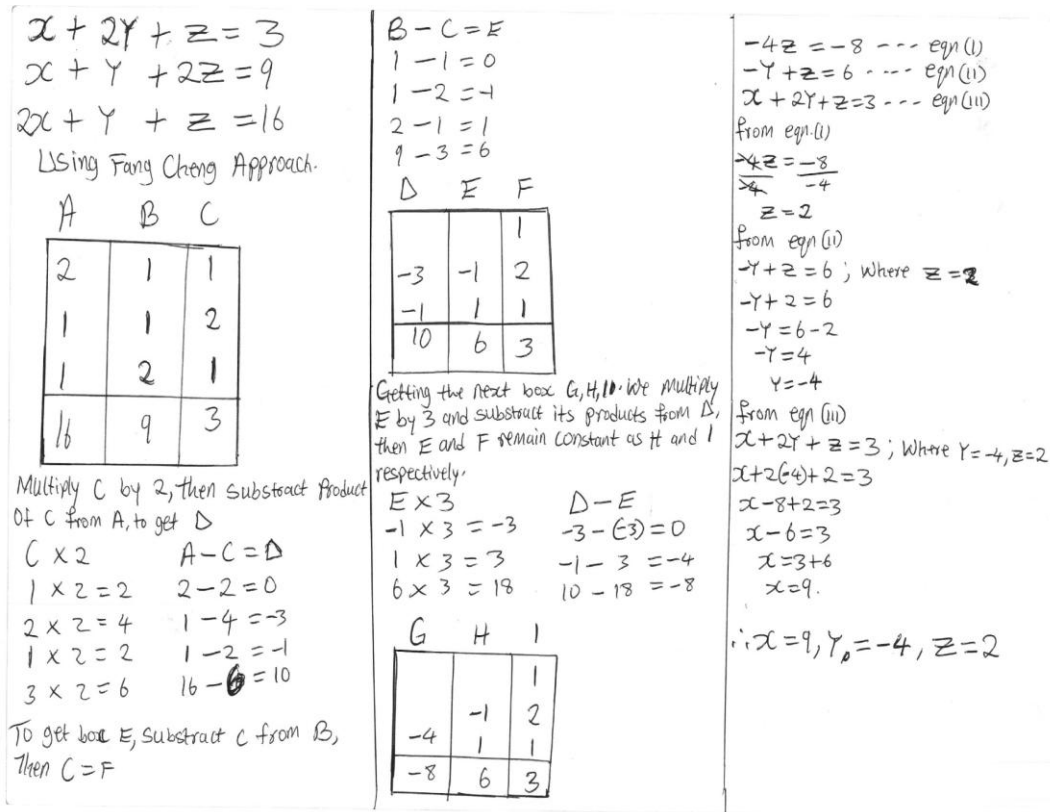 x + 2Y + z = 3
x + Y + 2z = 9
2x + Y + z = 16
Using Fang Cheng Approach.
A B C
2 1 1
1 1 2
1 2 1
16 9 3
Multiply C by 2, then substract Product
Of C from A, to get D
C × 2 A - C = D
1 × 2 = 2 2 - 2 = 0
2 × 2 = 4 1 - 4 = -3
1 × 2 = 2 1 - 2 = -1
3 × 2 = 6 16 - 6 = 10
To get box E, Substract C from B,
Then C = F
B - C = E
1 - 1 = 0
1 - 2 = -1
2 - 1 = 1
9 - 3 = 6
D E F
1
-3 -1 2
-1 1 1
10 6 3
Getting the next box G, H, I. We multiply
E by 3 and substract its products from D,
then E and F remain constant as H and I
respectively.
E × 3 D - E
-1 × 3 = -3 -3 - (-3) = 0
1 × 3 = 3 -1 - 3 = -4
6 × 3 = 18 10 - 18 = -8
G H I
1
-1 2
-4 1 1
-8 6 3
-4z = -8 --- eqn (I)
-Y + z = 6 ---- eqn (II)
x + 2Y + z = 3 --- eqn (III)
from eqn.(I)
-4z = -8
-4 -4
z = 2
from eqn (II)
-Y + z = 6 ; Where z = 2
-Y + 2 = 6
-Y = 6 - 2
-Y = 4
Y = -4
from eqn (III)
x + 2Y + z = 3 ; Where Y = -4, z = 2
x + 2(-4) + 2 = 3
x - 8 + 2 = 3
x - 6 = 3
x = 3 + 6
x = 9.
∴ x = 9, Y = -4, z = 2